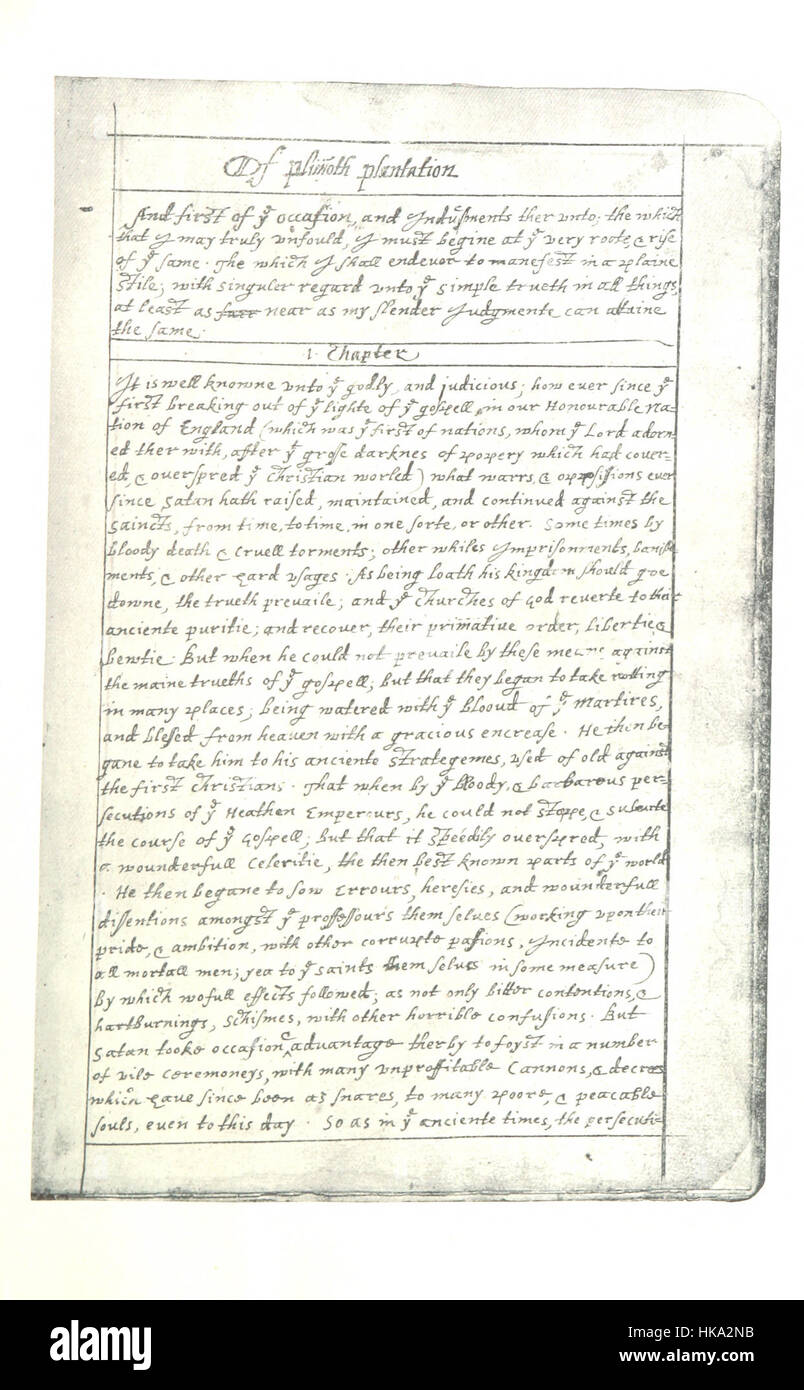 Of plimoth plantation
And first of yᵉ occasion, and Indusments ther vnto; the which
that I may truly vnfould, I must begine at yᵉ very roote, & rise
of yᵉ same. The which I shall endevor to manefest in a plaine
stile; with singuler regard vnto yᵉ simple trueth in all things,
at least as farr near as my slender Judgmente can attaine
the same.
1 Chapter
It is well knowne vnto yᵉ godly, and judicious; how ever since yᵉ
first breaking out of yᵉ lighte of yᵉ gospell, in our Honourable Na-
tion of England (which was yᵉ first of nations, whom yᵉ Lord adorn-
ed ther with, after yᵉ grosse darknes of popery which had cover-
ed, & overspred yᵉ christian world) what warrs, & oppossissions ever
since Satan hath raised, maintained, and continued against the
Saincts, from time, to time, in one sorte, or other. Some times by
bloody death & cruell torments; other whiles Imprisonments, banish-
ments, & other hard vsages. As being loath his kingdom should goe
downe, the trueth prevaile; and yᵉ Churches of God reverte to their
anciente puritie; and recover, their primative order, libertie &
bewtie. But when he could not prevaile by these means against
the maine trueths of yᵉ gospell; but that they began to take rotting
in many places; being watered with yᵉ bloud of yᵉ Martires,
and blessed from heaven with a gracious encrease. He then be-
gane to take him to his anciente strategemes, vsed of old against
the first Christians. That when by yᵉ bloody, & barbarous per-
secutions of yᵉ Heathen Emperours, he could not stoppe, & subverte
the course of yᵉ Gospell; but that it speedily overspred, with
a wounderfull Celeritie, the then best known parts of yᵉ world
. He then begane to sow Errours, heresies, and wounderfull
dissentions amongst yᵉ professours them selves (working vpon their
pride, & ambition, with other corrupte passions, Incidente to
all mortall men; yea to yᵉ saints them selves in some measure)
by which wofull effects followed; as not only bitter contentions, &
hartburnings, schismes, with other horrible confusions. But
Satan tooke occasion & advantage therby to foyst in a number
of vile ceremoneys, with many vnproffitable Cannons, & decrees
which have since been as snares, to many poore, & peacable
souls, even to this day. So as in yᵉ anciente times, the persecuti-
alamy
alamy
Image ID: HKA2NB
www.alamy.com